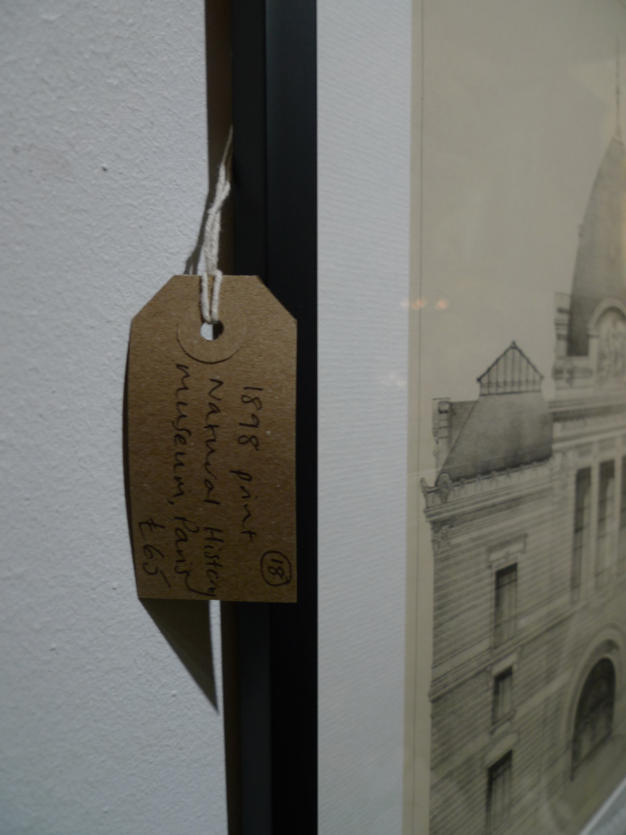 1898 print
Natural History
Museum, Paris
£65
18